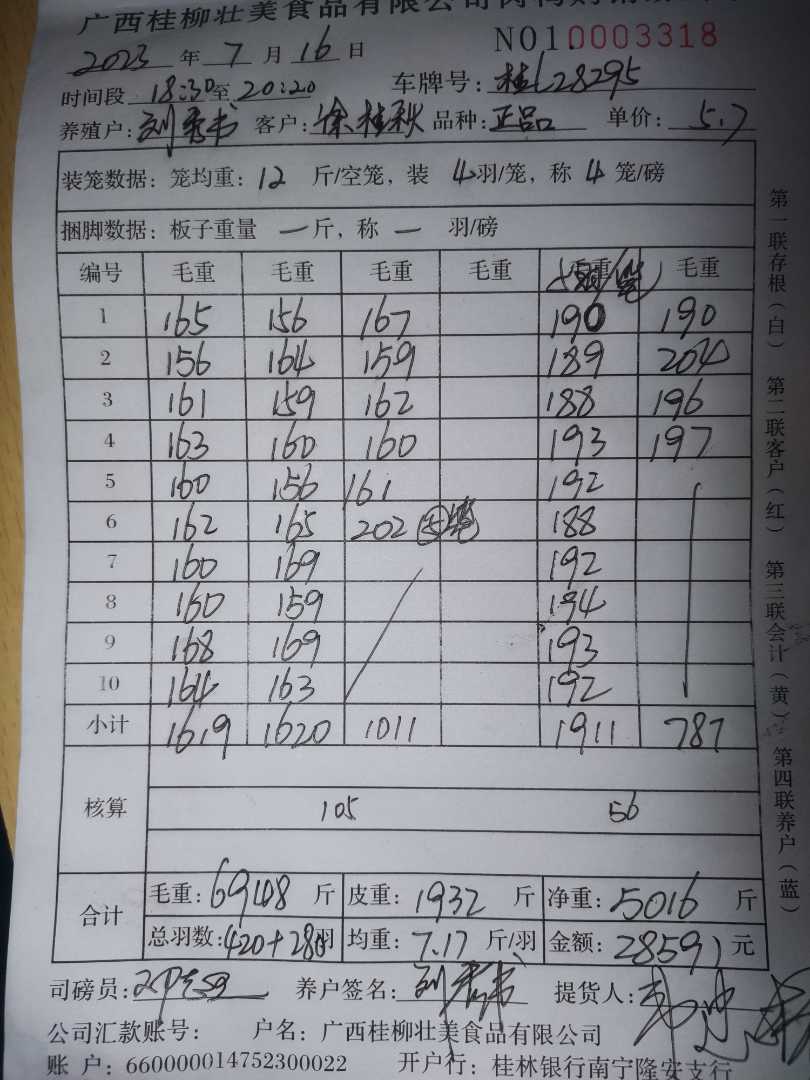 广西桂柳壮美食品有限公司
2023 年 7 月 16 日 NO10003318
时间段 18:30至20:20 车牌号: 桂L28295
养殖户: 刘秀书 客户: 徐桂秋 品种: 正品 单价: 5.7
装笼数据: 笼均重: 12 斤/空笼, 装 4羽/笼, 称 4 笼/磅
捆脚数据: 板子重量 一斤, 称 一 羽/磅
编号 毛重 毛重 毛重 毛重 毛重
1 165 156 167 190 190
2 156 164 159 189 204
3 161 159 162 188 196
4 163 160 160 193 197
5 160 156 161 192
6 162 165 202 188
7 160 169 192
8 160 159 194
9 168 169 193
10 164 163 192
小计 1619 1620 1011 1911 787
核算 105 56
合计 毛重: 6948 斤 皮重: 1932 斤 净重: 5016 斤
总羽数: 420+280羽 均重: 7.17 斤/羽 金额: 28591 元
司磅员: 养户签名: 刘秀书 提货人:
公司汇款账号: 户名: 广西桂柳壮美食品有限公司
账 户: 660000014752300022 开户行: 桂林银行南宁隆安支行
第一联存根(白) 第二联客户(红) 第三联会计(黄) 第四联养户(蓝)